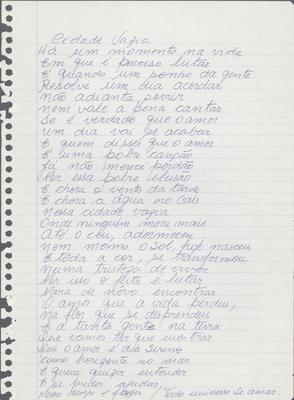 Cidade Vazia
Há um momento na vida
Em que é preciso lutar
É quando um sonho da gente
Resolve um dia acordar
Não adianta sorrir
Nem vale a pena cantar
Se é verdade que o amor
um dia vai se acabar
E quem disser que o amor
É uma pobre canção
Já não merece perdão
Por essa pobre ilusão
E chora o vento da tarde
E chora a agua no cais
Nessa cidade vazia
Onde ninguém mora mais
Até o céu, adormeceu
Nem mesmo o Sol, hoje nasceu
E toda a cor, se transformou
Numa tristeza de viver
Por isso o jeito é lutar
Para de novo encontrar
O amor que a vida perdeu,
Na flor que se desprendeu
E a tanta gente na terra
Que vamos ter que mostrar
Que o amor é dia sereno
como horizonte no mar
E quem quizer entender
E se puder ajudar,
Novo tempo é / Todo universo se amar.